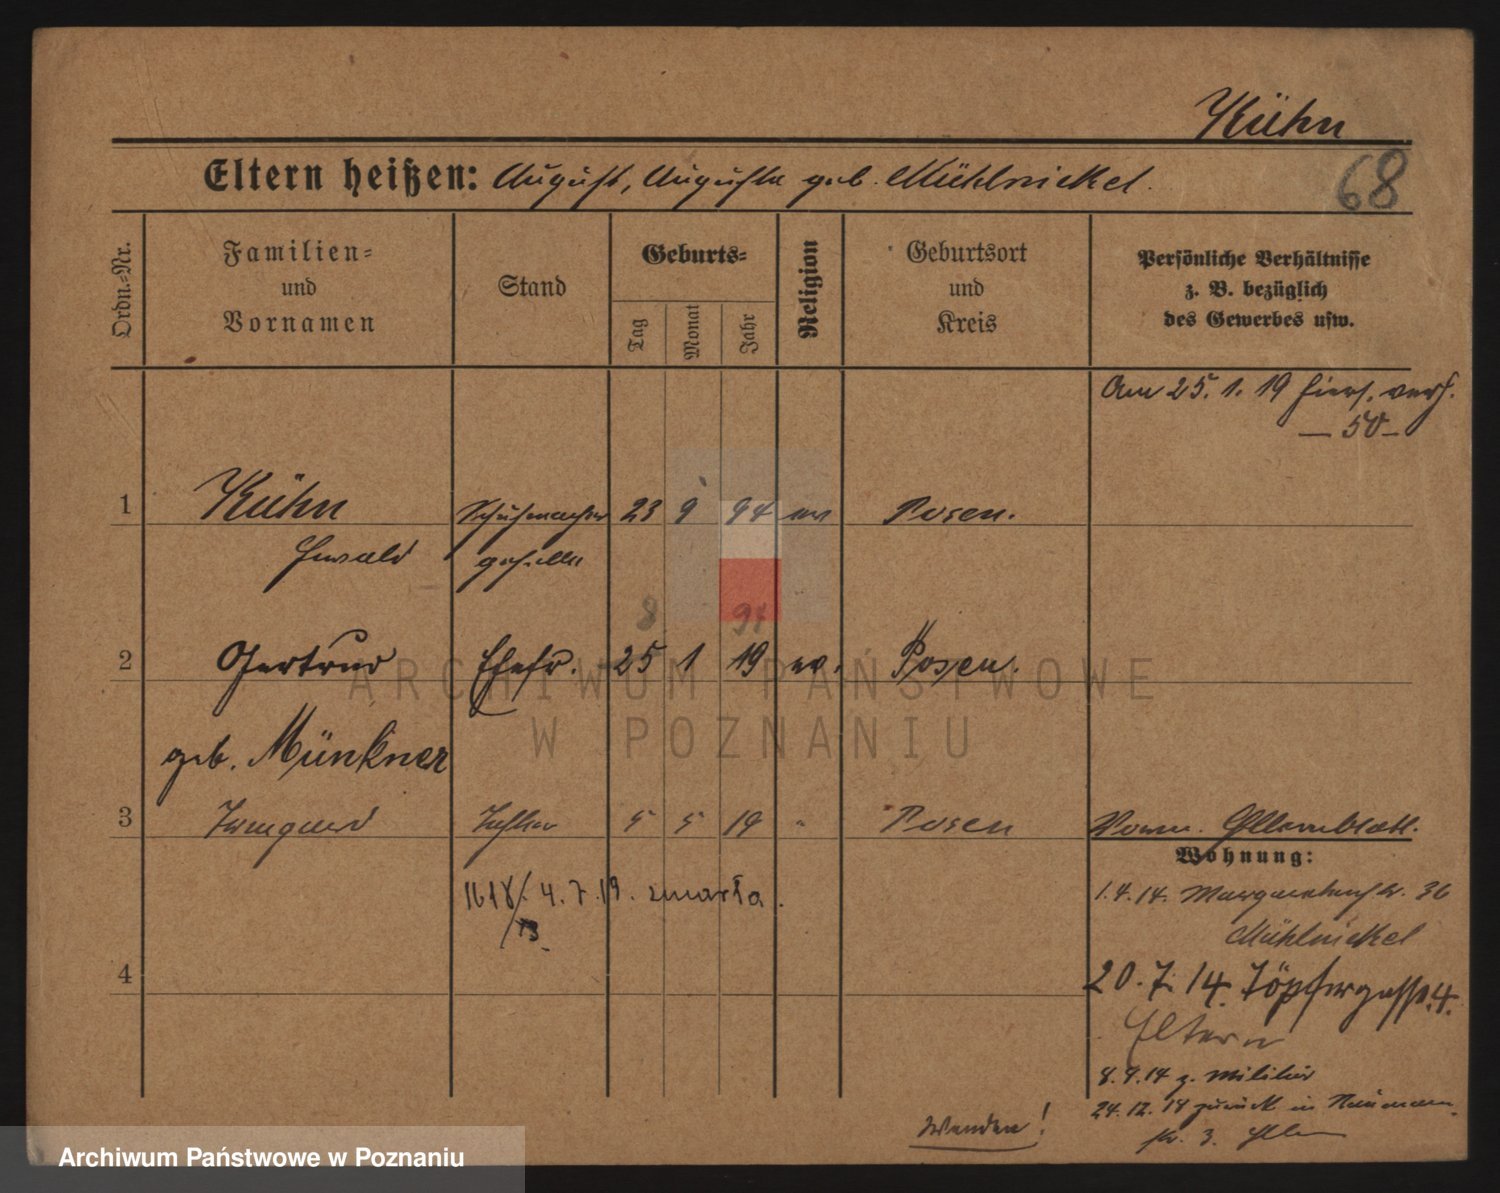 Kühn
Eltern heißen: August, Auguste geb. Mühlnickel.
68
Ordn.-Nr.
Familien-
und
Vornamen
Stand
Geburts-
Tag
Monat
Jahr
Religion
Geburtsort
und
Kreis
Persönliche Verhältnisse
z. B. bezüglich
des Gewerbes usw.
Am 25. 1. 19 hiers. verh.
— 50 —
1 Kühn Schuhmacher 23 9 94 ev Posen.
Ewald geselle
8 94
2 Gertrud Ehefr. 25 1 19 ev. Posen.
geb. Münkner
3 Irmgard Tochter 5 5 19 " Posen Vorm. Elternblatt.
Wohnung:
1618/ 4. 7. 19. zmarła.
/13
1.4.14. Margarethenstr. 36
Mühlnickel
4
20. 7. 14. Töpfergasse 4.
Eltern
8.9.14 z. Militär
24.12.18 zurück in Naumann
str. 3. Eltern
Wenden!
ARCHIWUM PAŃSTWOWE
W POZNANIU
Archiwum Państwowe w Poznaniu